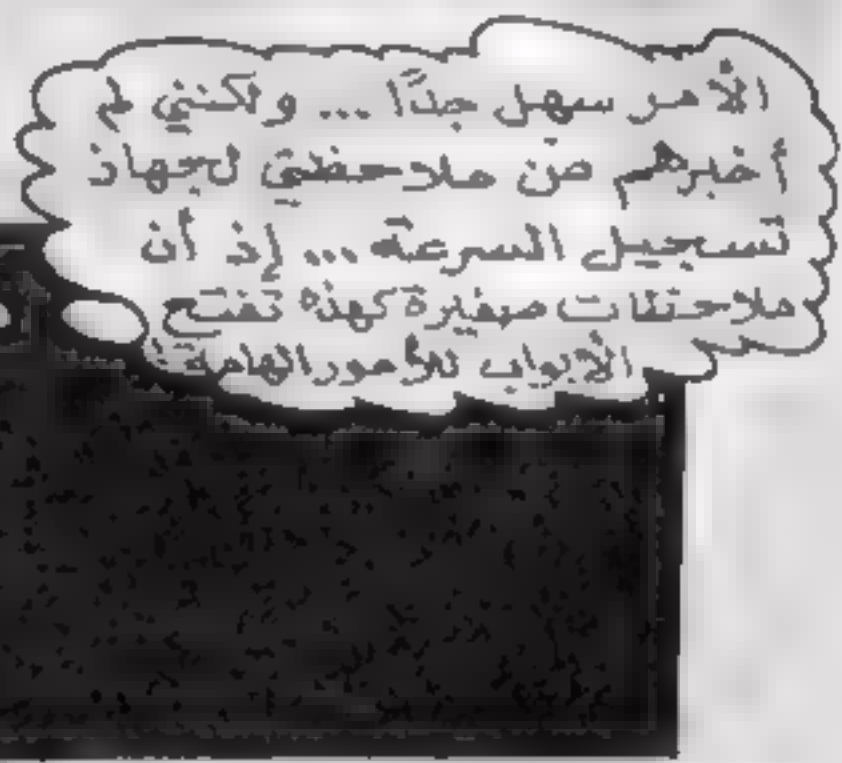 الأمر سهل جدًا ... ولكنني لم
أخبرهم عن ملاحظتي لجهاز
تسجيل السرعة ... إذ أن
ملاحظات صغيرة كهذه تفتح
الأبواب للأمور الهامة